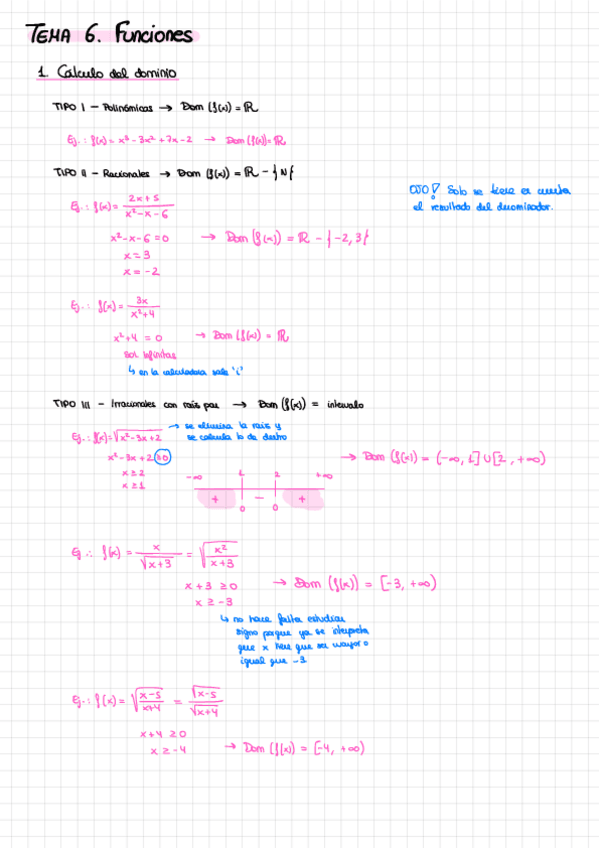 TEMA 6. Funciones
1. Cálculo del dominio
TIPO I – Polinómicas → Dom (f(x)) = ℝ
Ej.: f(x) = x³ - 3x² + 7x - 2 → Dom (f(x)) = ℝ
TIPO II – Racionales → Dom (f(x)) = ℝ - {N}
OJO! Solo se tiene en cuenta
el resultado del denominador.
Ej.: f(x) = (2x + 5)/(x² - x - 6)
x² - x - 6 = 0 → Dom (f(x)) = ℝ - {-2, 3}
x = 3
x = -2
Ej.: f(x) = 3x/(x² + 4)
x² + 4 = 0 → Dom (f(x)) = ℝ
Sol. infinitas
↳ en la calculadora sale "i"
TIPO III – Irracionales con raíz par → Dom (f(x)) = intervalo
Ej.: f(x) = √(x² - 3x + 2) → se elimina la raíz y
se calcula lo de dentro
x² - 3x + 2 ≥ 0 → Dom (f(x)) = (-∞, 1] ∪ [2, +∞)
x ≥ 2
x ≥ 1
-∞ 1 2 +∞
+ - +
0 0
Ej.: f(x) = x/√(x + 3) = √(x²/(x + 3))
x + 3 ≥ 0 → Dom (f(x)) = [-3, +∞)
x ≥ -3
↳ no hace falta estudiar
signo porque ya se interpreta
que x tiene que ser mayor o
igual que -3
Ej.: f(x) = √((x - 5)/(x + 4)) = √(x - 5)/√(x + 4)
x + 4 ≥ 0
x ≥ -4 → Dom (f(x)) = [-4, +∞)